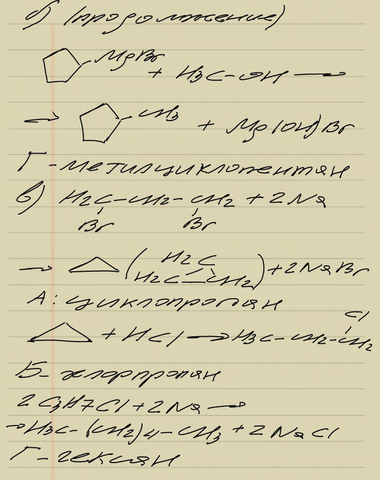 б) (продолжение)
MgBr
+ H3C-OH →
→ CH3 + Mg(OH)Br
Г - метилциклопентан
в) H2C-CH2-CH2 + 2Na
Br Br
→ (H2C H2C-CH2) + 2NaBr
А: циклопропан
Cl
+ HCl → H3C-CH2-CH2
Б - хлорпропан
2C3H7Cl + 2Na →
→ H3C-(CH2)4-CH3 + 2NaCl
Г - гексан